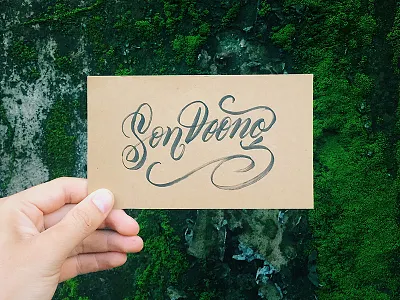 Son Doong